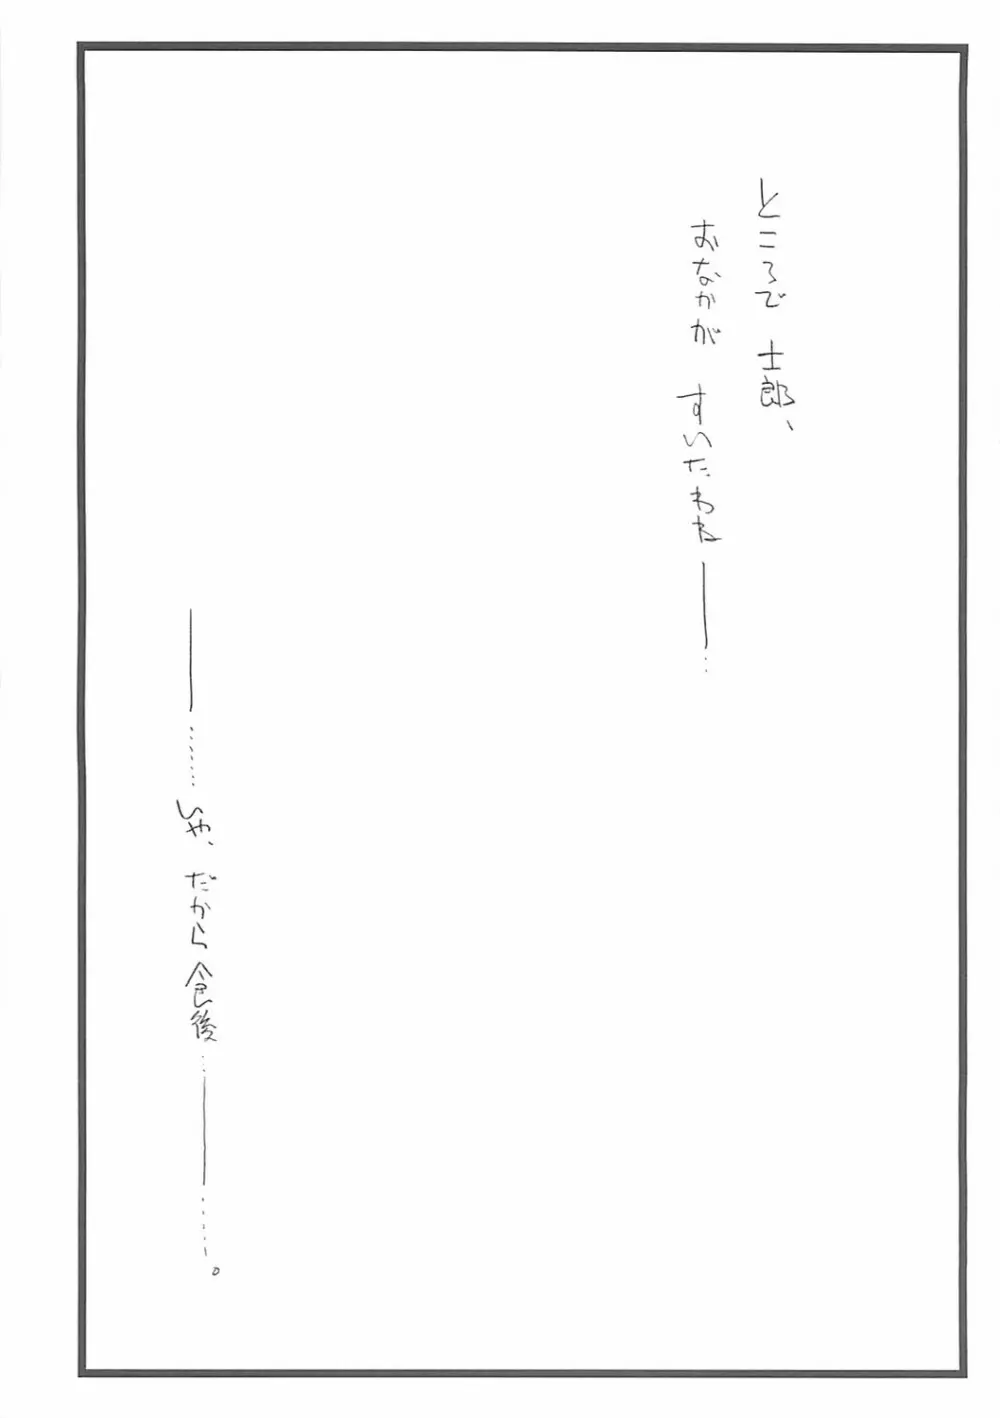 ところで 士郎、
おなかが すいたわね――…
――………いや、だから食後…――……。